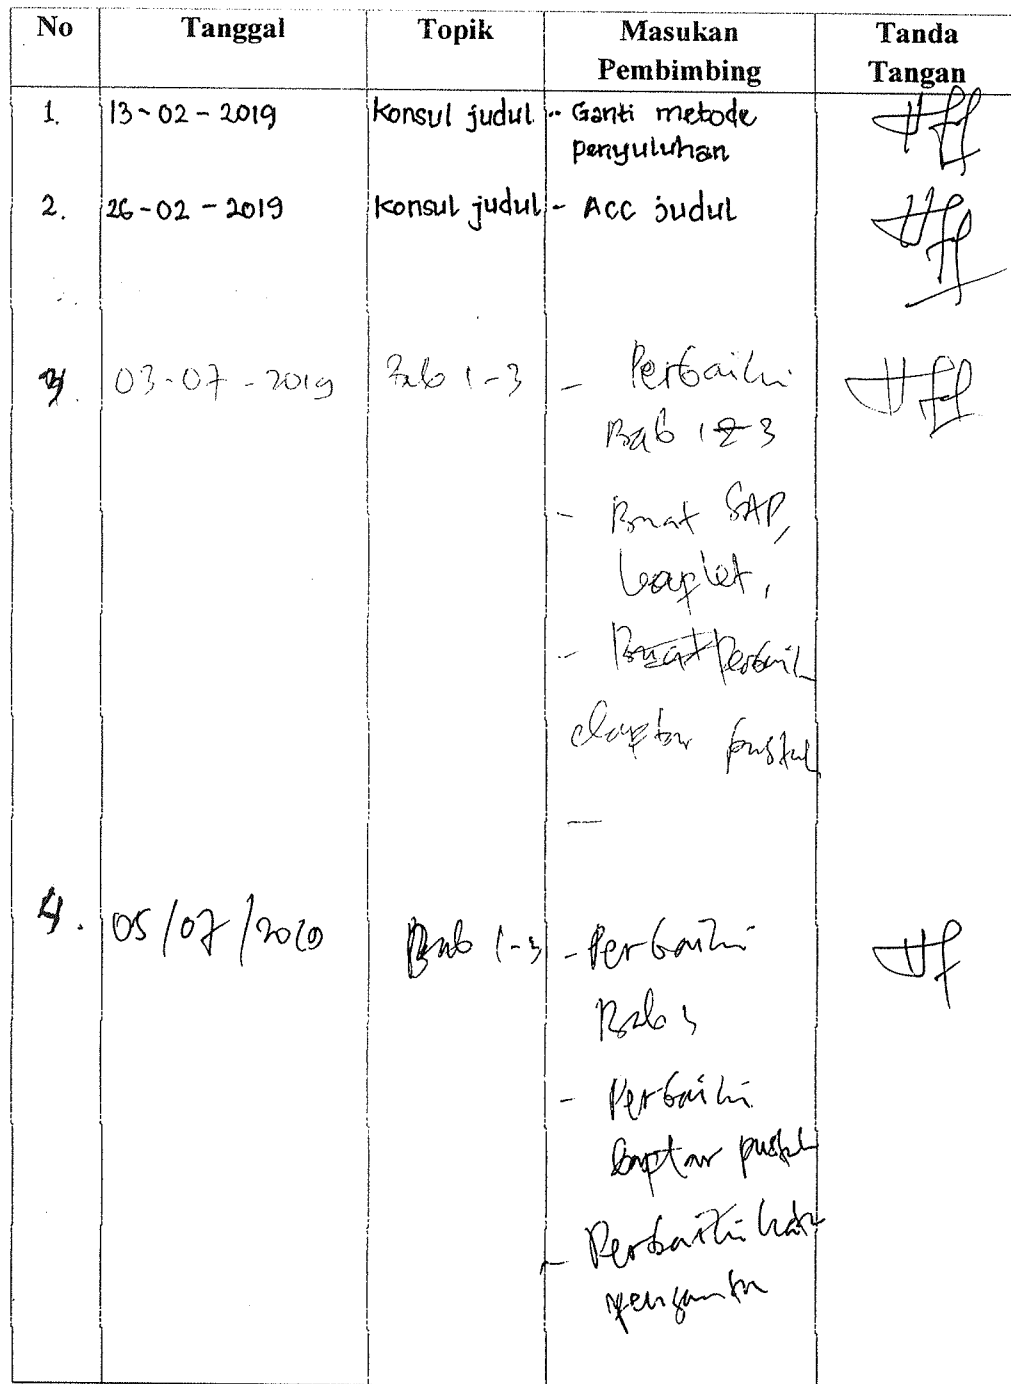 No Tanggal Topik Masukan Pembimbing Tanda Tangan
1. 13-02-2019 Konsul judul - Ganti metode
penyuluhan
2. 26-02-2019 Konsul judul - Acc judul
3. 03-07-2019 Bab 1-3 - Perbaiki
Bab 1 & 3
- Buat SAP,
leaplet,
- Perbaiki
daptar pustak
4. 05/07/2019 Bab 1-3 - Perbaiki
Bab 3
- Perbaiki
daptar pustak
- Perbaiki kata
pengantar